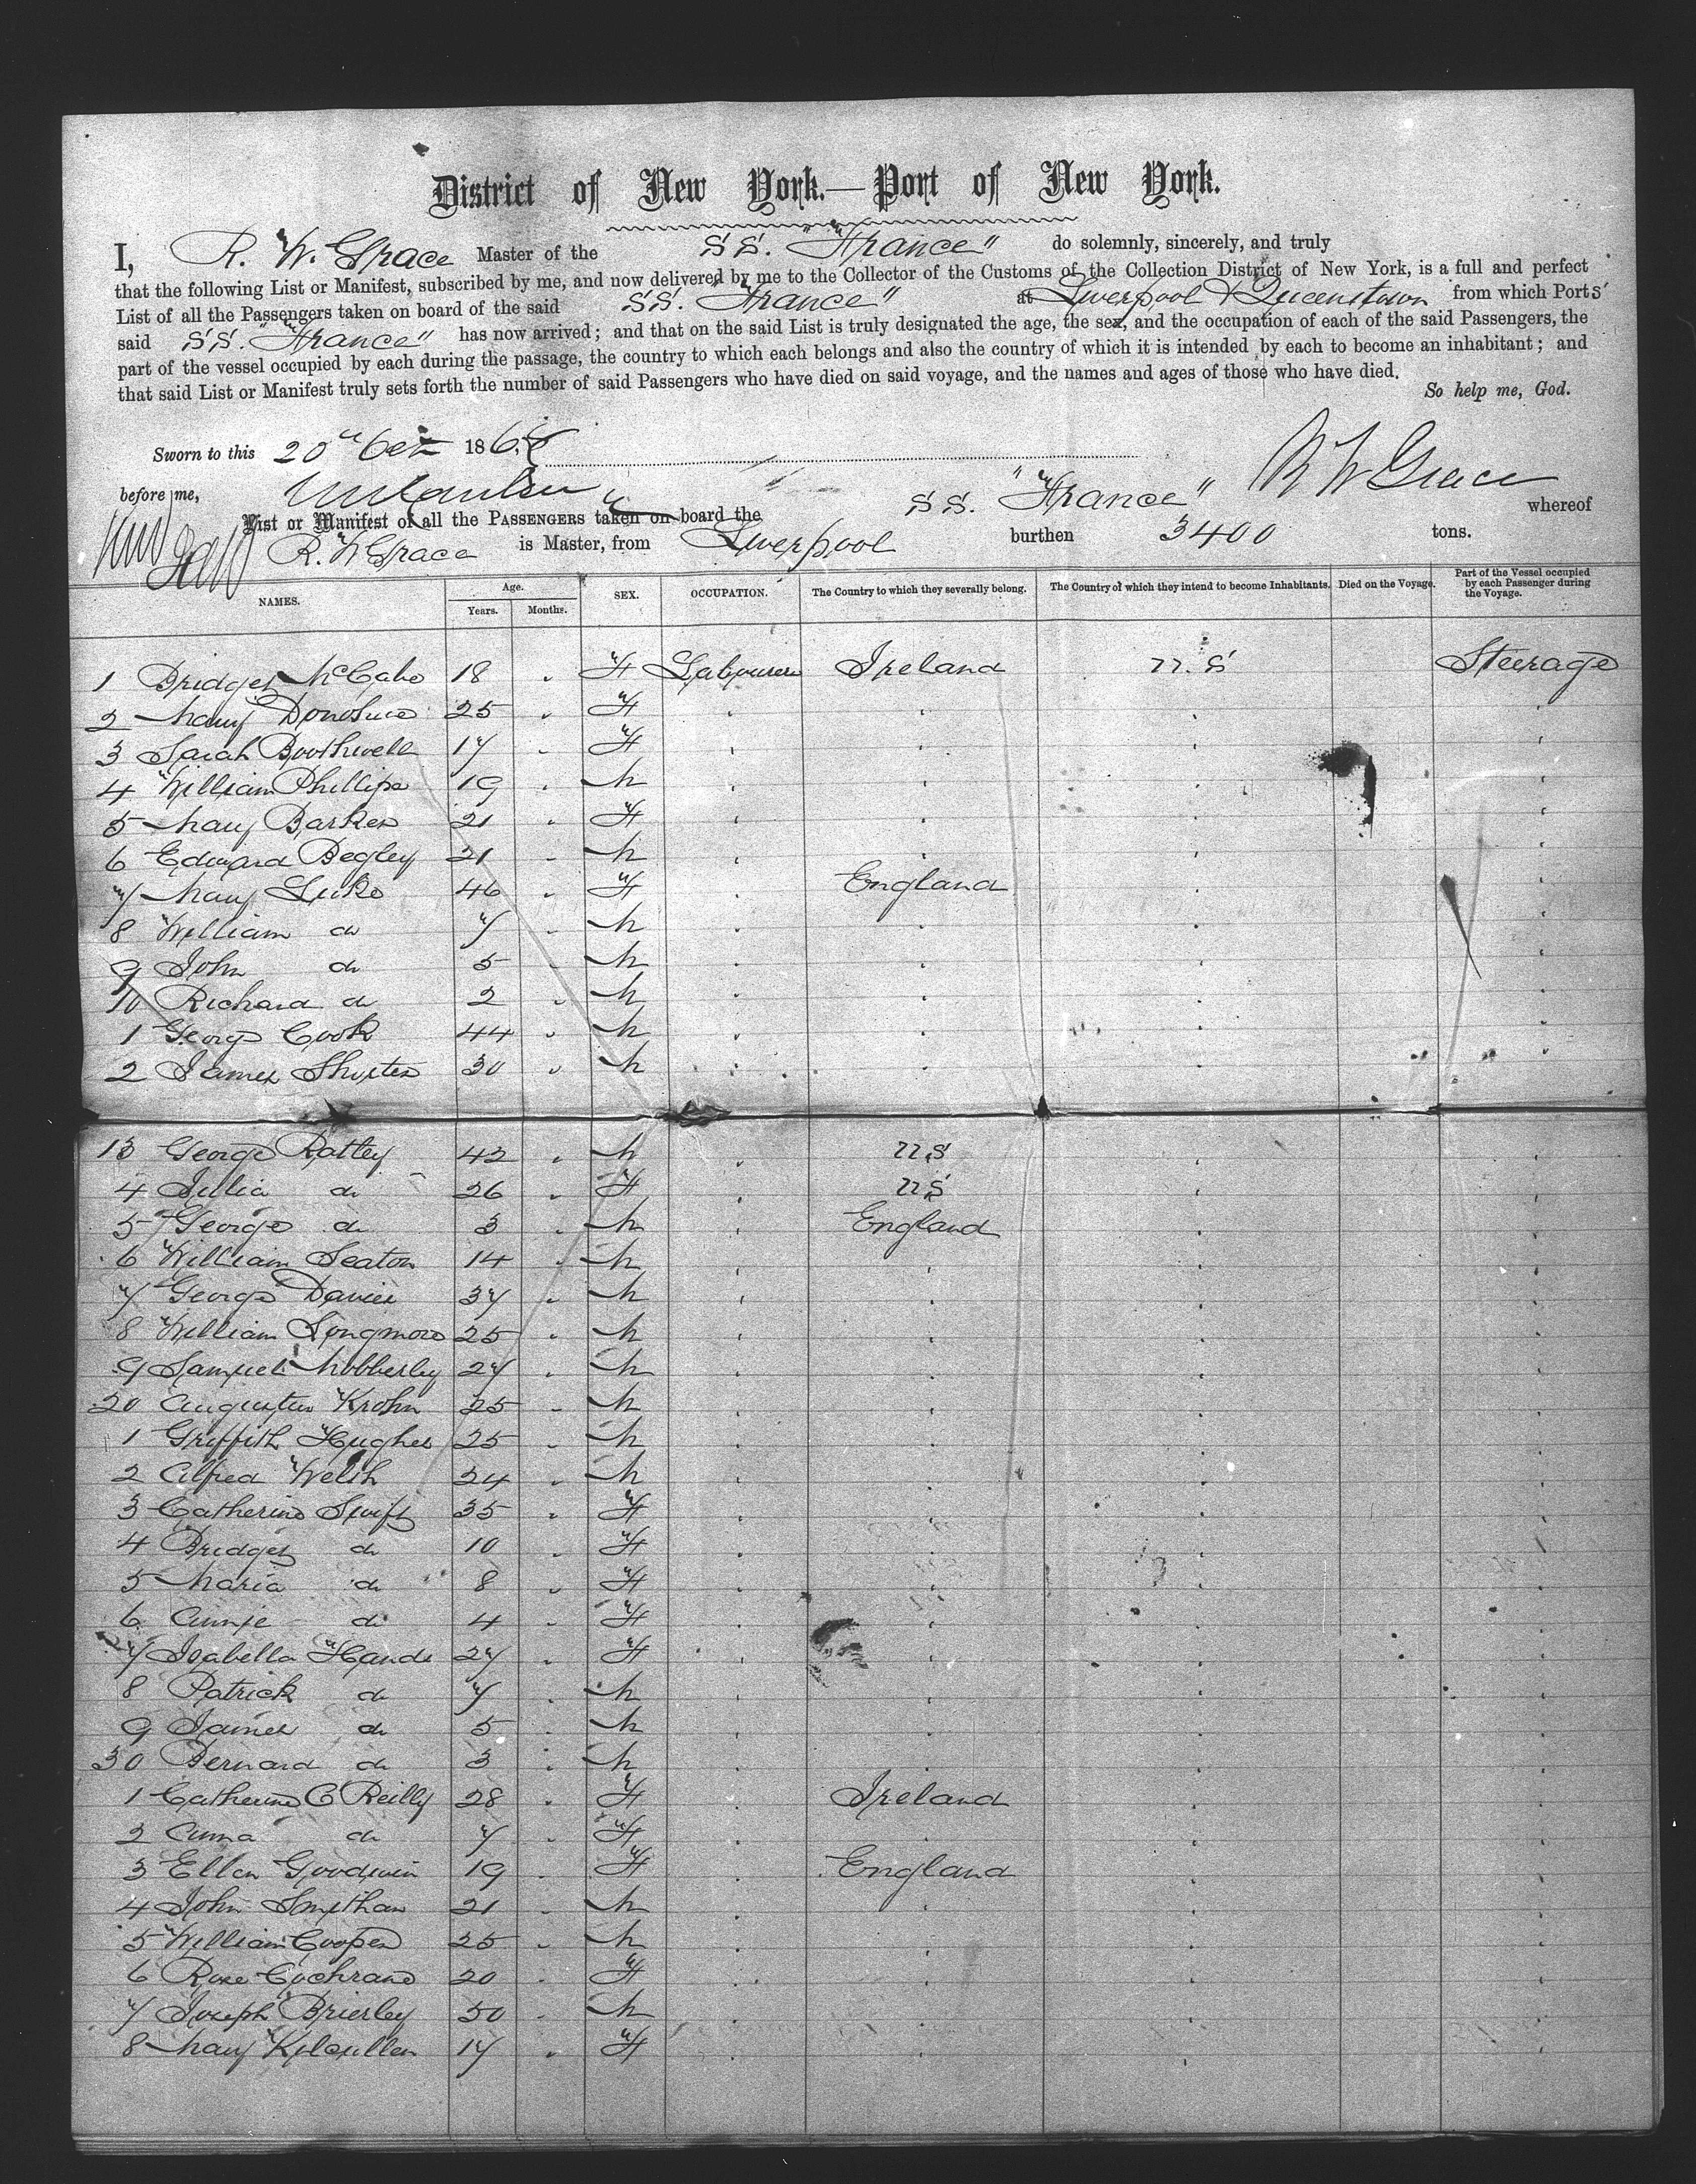 District of New York.—Port of New York.
I, R. W. Grace Master of the S.S. "France" do solemnly, sincerely, and truly
that the following List or Manifest, subscribed by me, and now delivered by me to the Collector of the Customs of the Collection District of New York, is a full and perfect
List of all the Passengers taken on board of the said S.S. "France" at Liverpool & Queenstown from which Ports
said S.S. "France" has now arrived; and that on the said List is truly designated the age, the sex, and the occupation of each of the said Passengers, the
part of the vessel occupied by each during the passage, the country to which each belongs and also the country of which it is intended by each to become an inhabitant; and
that said List or Manifest truly sets forth the number of said Passengers who have died on said voyage, and the names and ages of those who have died.
So help me, God.
Sworn to this 20th Oct 186
R W Grace
before me,
List or Manifest of all the PASSENGERS taken on board the S.S. "France" whereof
R. W Grace is Master, from Liverpool burthen 3400 tons.
NAMES. Age. Years. Months. SEX. OCCUPATION. The Country to which they severally belong. The Country of which they intend to become Inhabitants. Died on the Voyage. Part of the Vessel occupied by each Passenger during the Voyage.
1 Bridget McCabe 18 " F Labourers Ireland U.S Steerage
2 Mary Donohue 25 " F " " " "
3 Sarah Boothwell 17 " F " " " "
4 William Phillips 19 " M " " " "
5 Mary Barker 21 " F " " " "
6 Edward Begley 21 " M " " " "
7 Mary Luke 46 " F " England " "
8 William do 7 " M " " " "
9 John do 5 " M " " " "
10 Richard do 2 " M " " " "
1 George Cook 44 " M " " " "
2 James Shuter 30 " M " " " "
13 George Rattey 42 " M " U.S " "
4 Julia do 26 " F " U.S " "
5 George do 3 " M " England " "
6 William Seaton 14 " M " " " "
7 George Davies 37 " M " " " "
8 William Longmore 25 " M " " " "
9 Samuel Mobberley 27 " M " " " "
20 Augustus Krohn 25 " M " " " "
1 Griffith Hughes 25 " M " " " "
2 Alfred Welsh 24 " M " " " "
3 Catherine Swift 35 " F " " " "
4 Bridget do 10 " F " " " "
5 Maria do 8 " F " " " "
6 Annie do 4 " F " " " "
7 Isabella Hands 27 " F " " " "
8 Patrick do 7 " M " " " "
9 James do 5 " M " " " "
30 Bernard do 3 " M " " " "
1 Catherine O Reilly 28 " F " Ireland " "
2 Anna do 7 " F " " " "
3 Ellen Goodwin 19 " F " England " "
4 John Smitham 21 " M " " " "
5 William Cooper 25 " M " " " "
6 Rose Cochrane 20 " F " " " "
7 Joseph Brierley 50 " M " " " "
8 Mary Kilcullen 17 " F " " " "